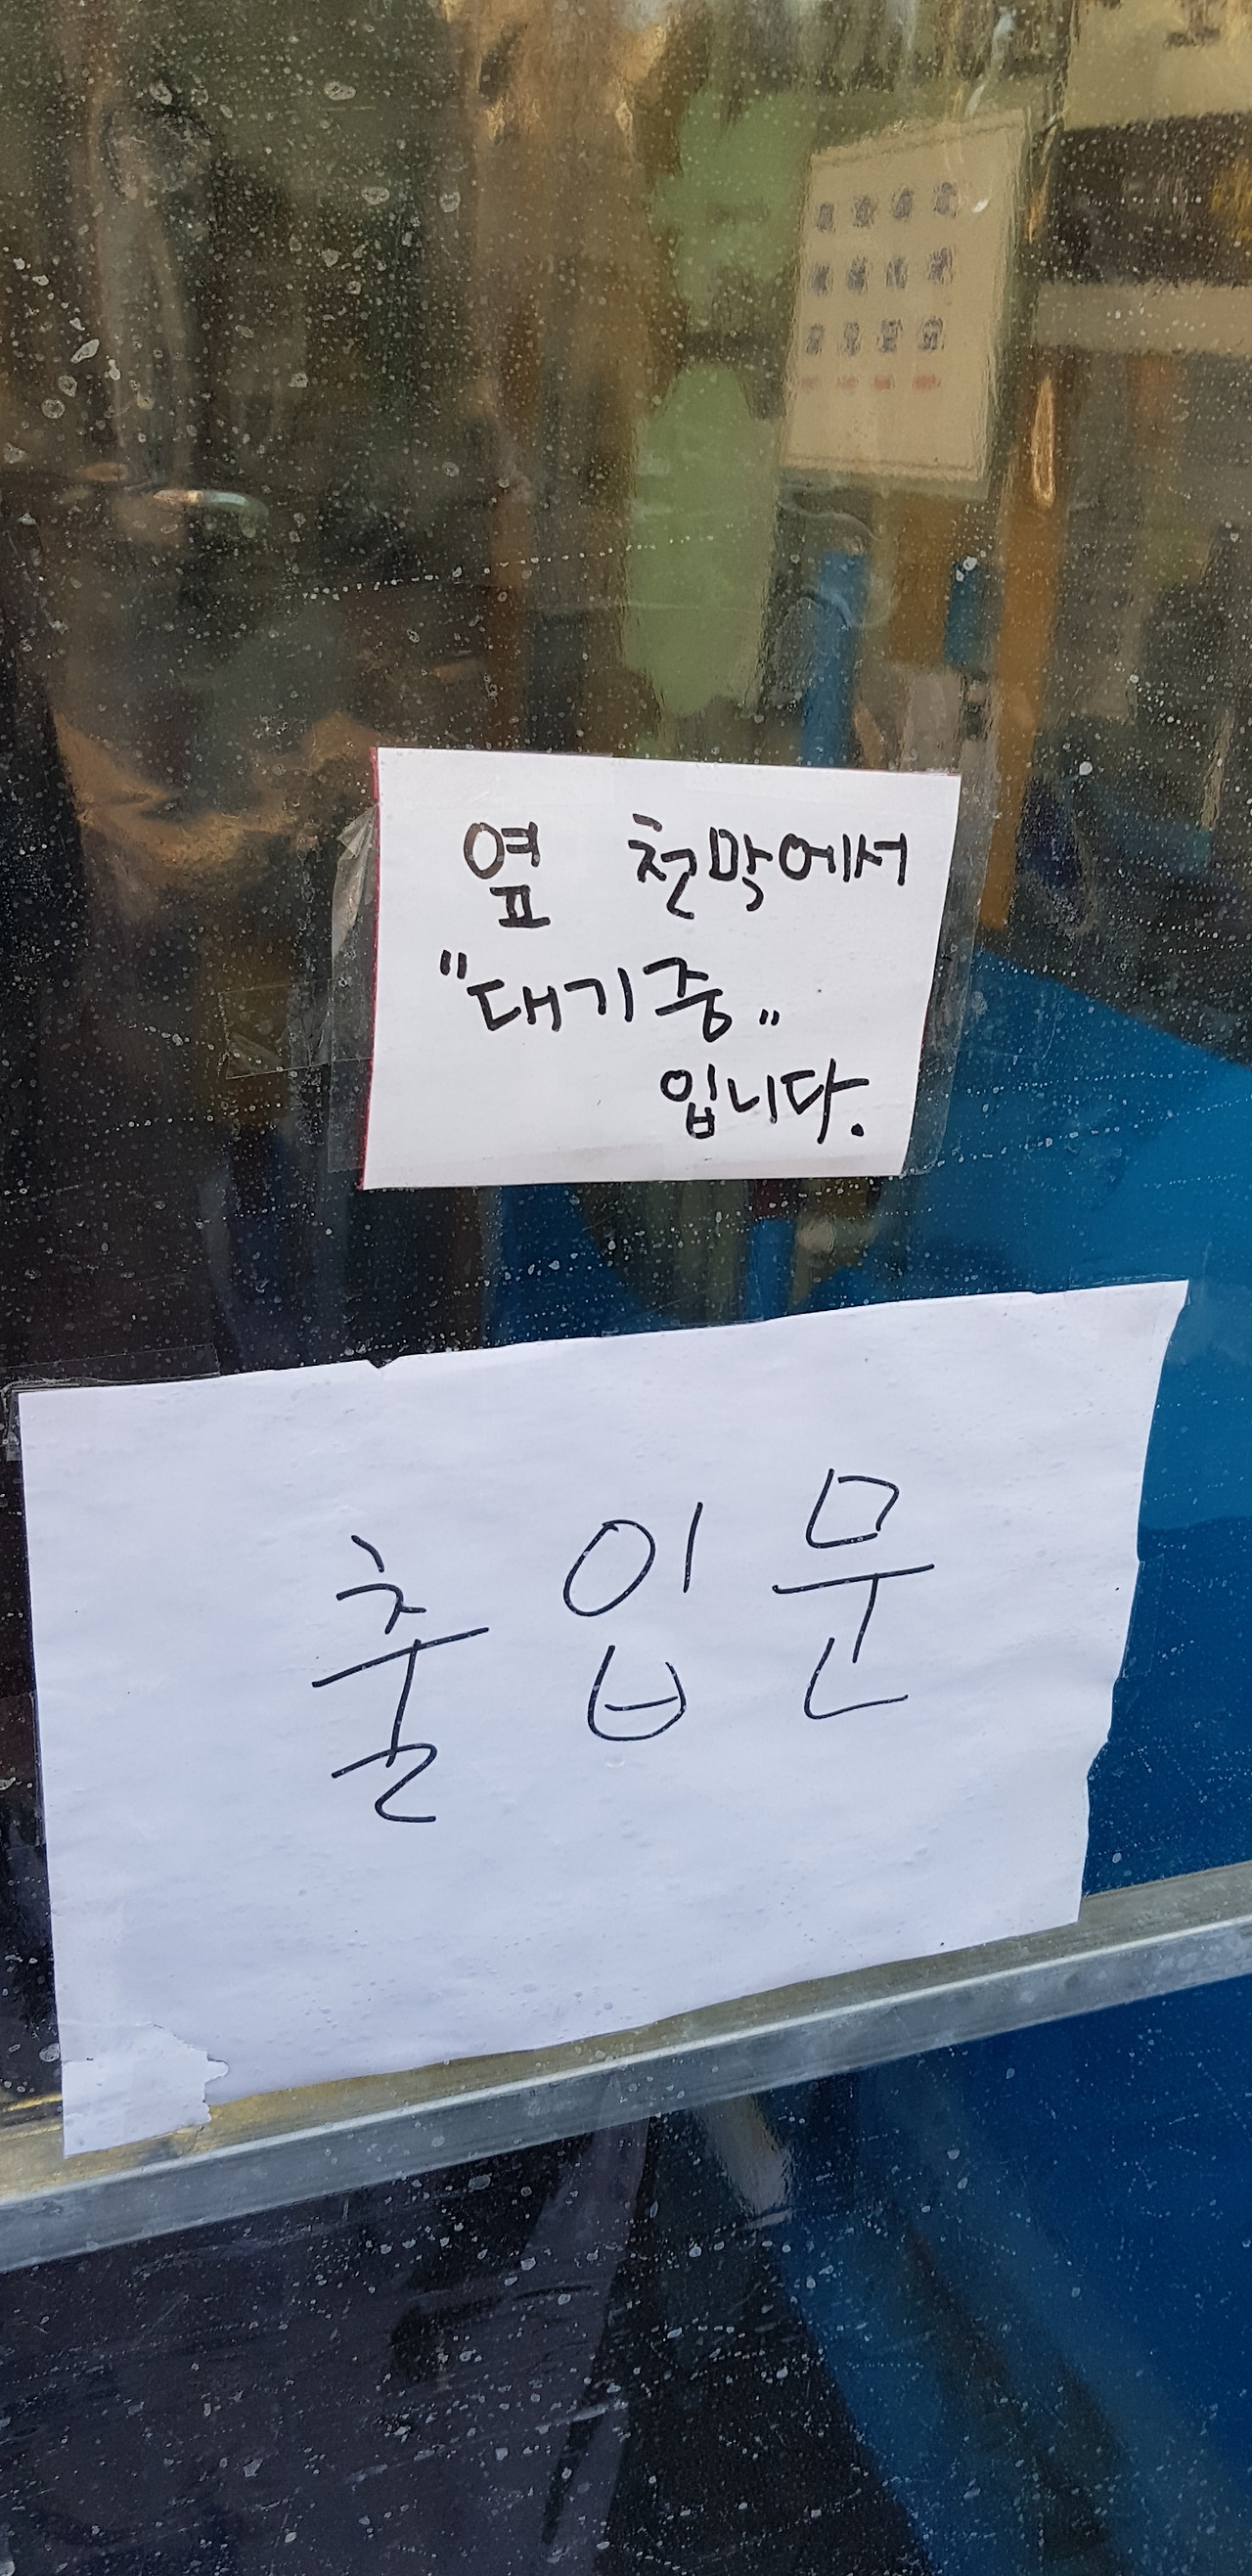 옆 천막에서
"대기중"
입니다.
출입문